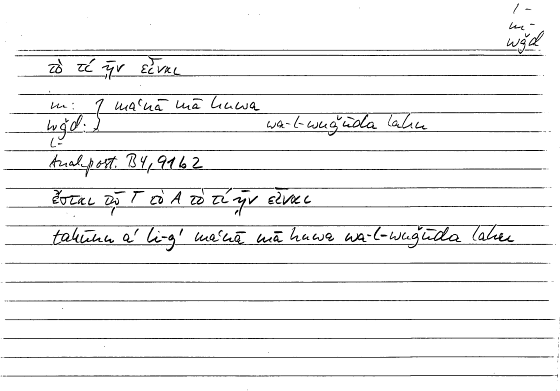 l -
m -
wǧd
τὸ τί ἦν εἶναι
m: } maʿnā mā huwa
wǧd: wa-l-wuǧūda lahu
l-
Anal. post. B 4, 91 b 2
ἔσται τῷ Γ τὸ A τὸ τί ἦν εἶναι
takūnu a' li-ǧ' maʿnā mā huwa wa-l-wuǧūda lahu